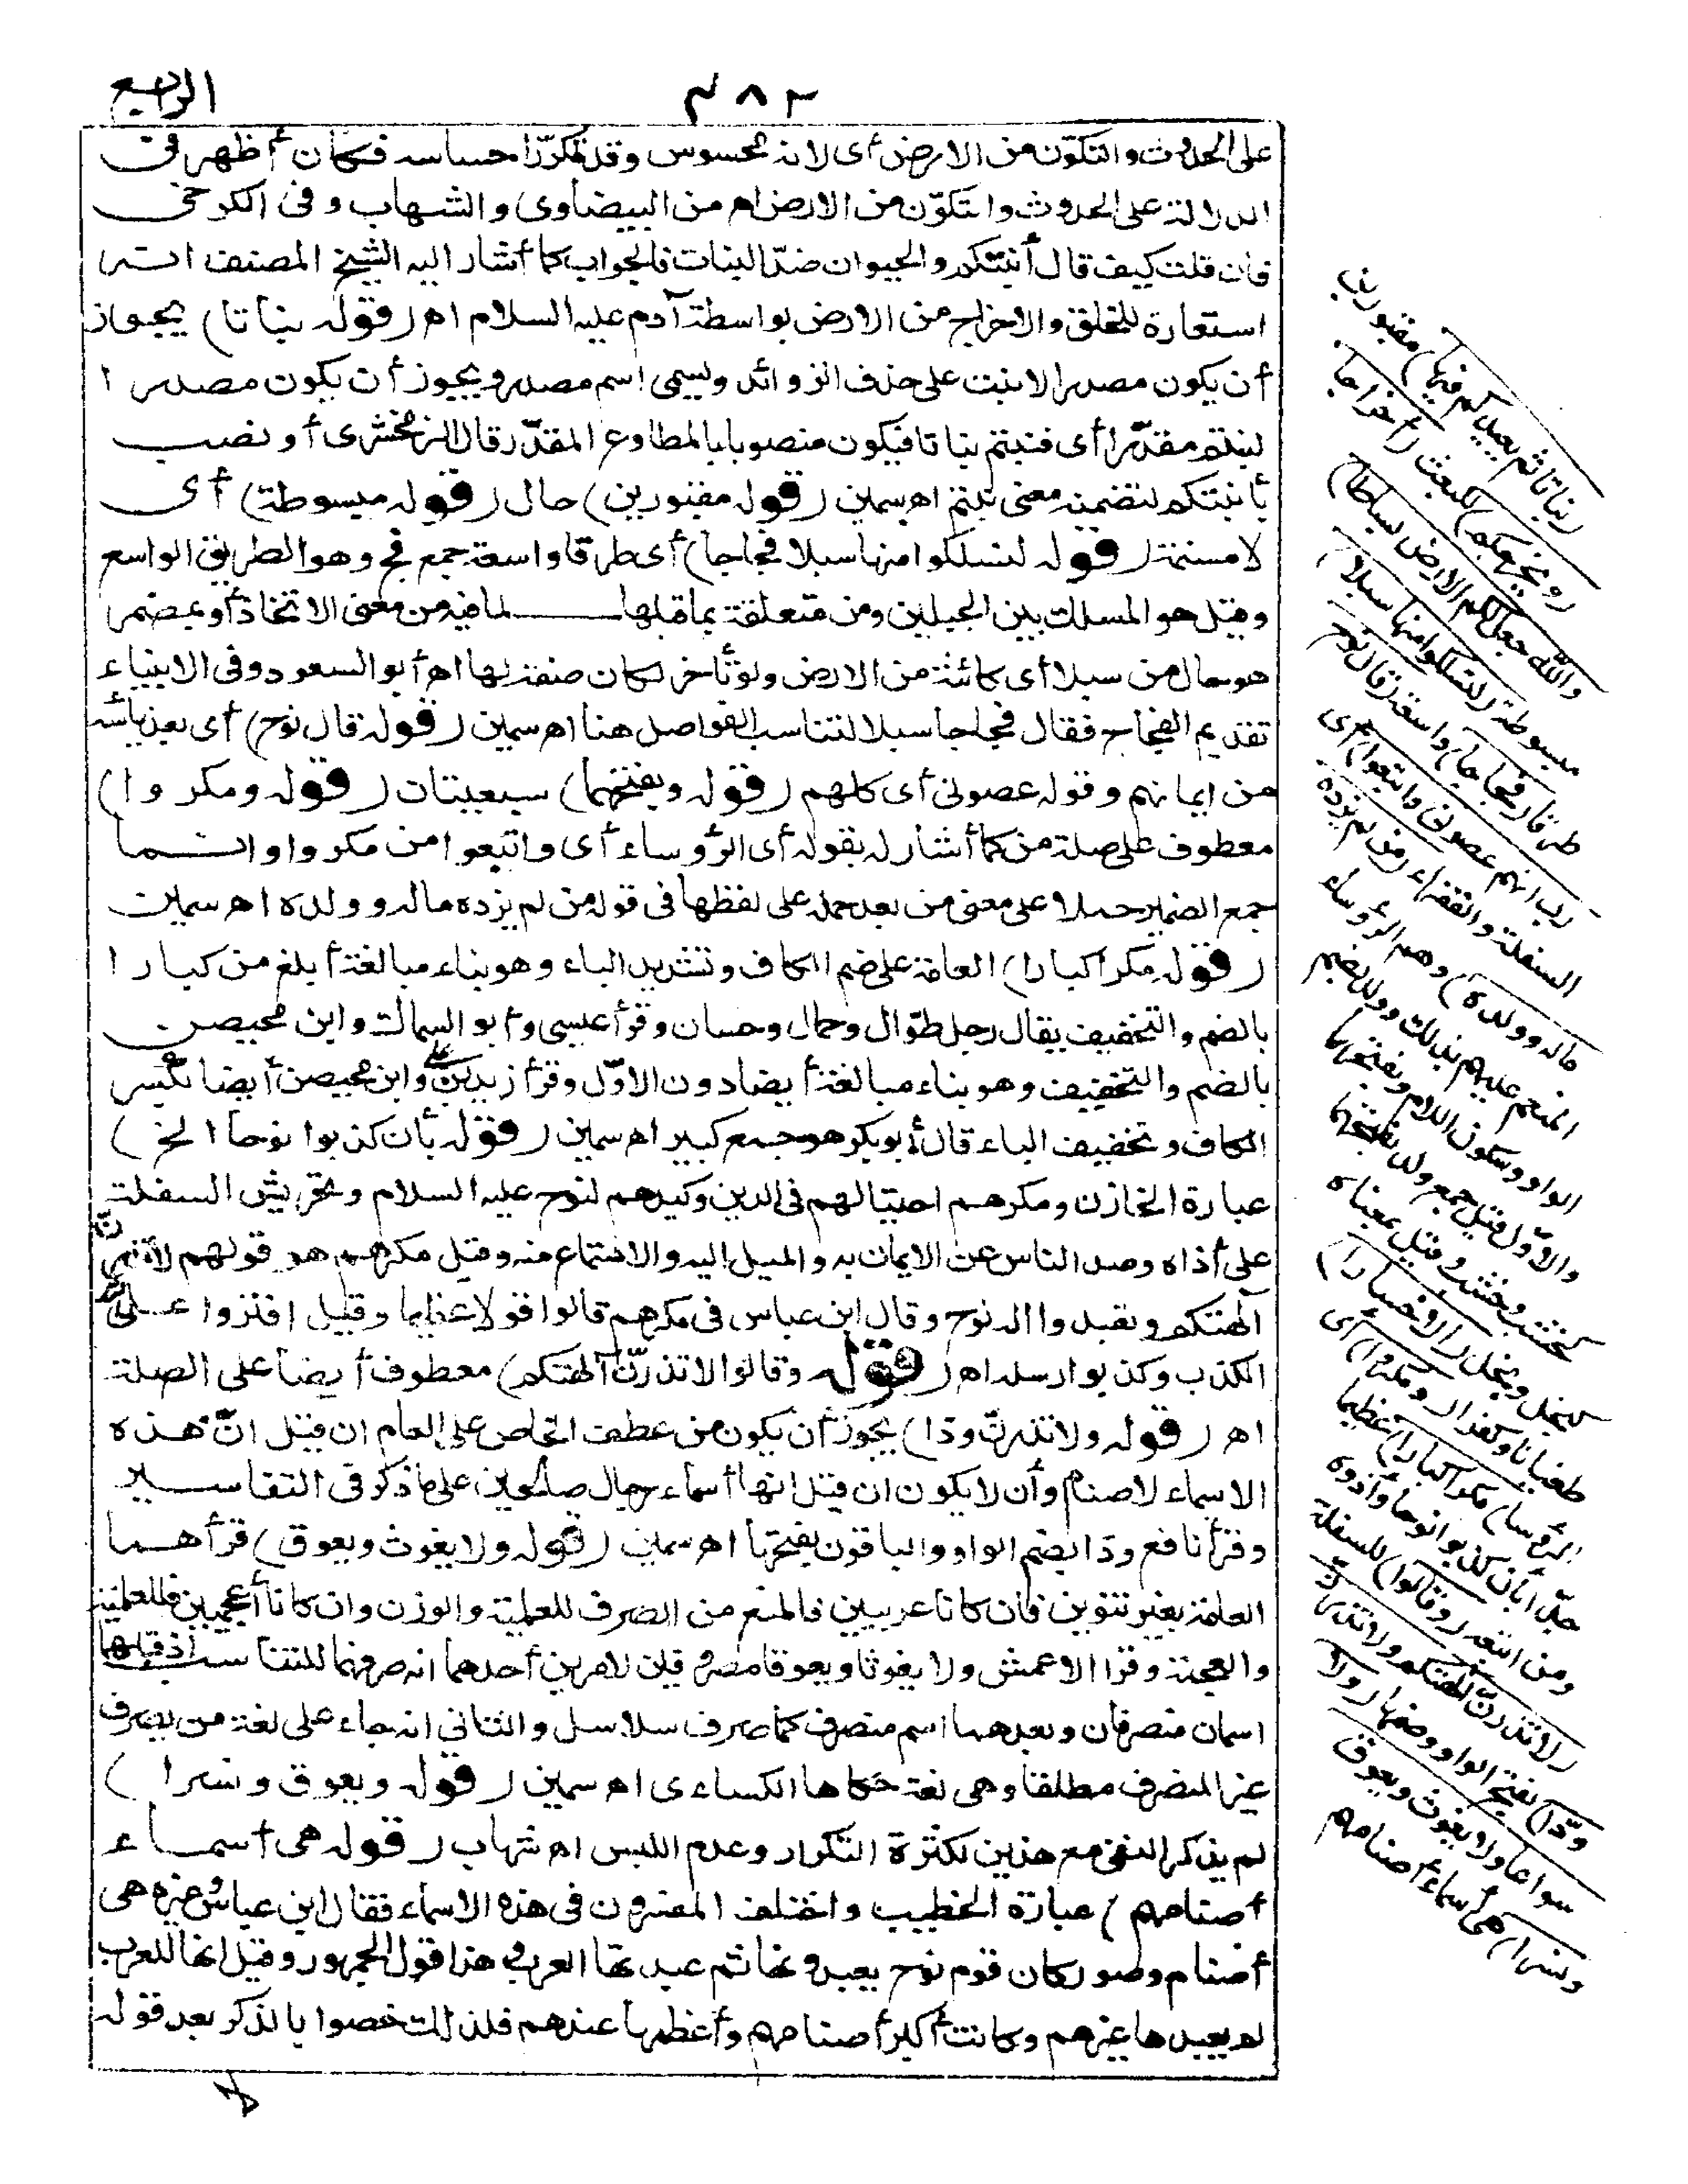 الرابع
٤٨٢
على الحدوث والتكوّن من الارض أى لانه محسوس وقد تكرّر احساسه فكان أظهر فى
الدلالة على الحدوث والتكوّن من الارض اه من البيضاوى والشهاب وفى الكرخى
فان قلت كيف قال أنبتكم والحيوان ضدّ النبات فالجواب كما أشار اليه الشيخ المصنف انه
استعارة للخلق والاخراج من الارض بواسطة آدم عليه السلام اه (قوله نباتا) يجوز
أن يكون مصدرا لانبت على حذف الزوائد ويسمى اسم مصدر ويجوز أن يكون مصدرا
لنبتم مقدّرا أى فنبتم نباتا فيكون منصوبا بالمطاوع المقدّر قال الزمخشرى أو نصب
بأنبتكم لتضمنه معنى نبتم اه سمين (قوله مقبورين) حال (قوله مبسوطة) أى
لا مسنمة (قوله لتسلكوا منها سبلا فجاجا) أى طرقا واسعة جمع فج وهو الطريق الواسع
وقيل هو المسلك بين الجبلين ومن متعلقة بما قبلها لما فيه من معنى الاتخاذ أو بمضمر
هو حال من سبلا أى كائنة من الارض ولو تأخر لكان صفة لها اه أبو السعود وفى الانبياء
تقديم الفجاج فقال فجاجا سبلا لتناسب الفواصل هنا اه سمين (قوله قال نوح) أى بعد يأسه
من ايمانهم وقوله عصونى أى كلهم (قوله وبفتحهما) سبعيتان (قوله ومكروا)
معطوف على صلة من كما أشار له بقوله أى الرؤساء أى واتبعوا من مكروا وانما
جمع الضمير حملا على معنى من بعد حمله على لفظها فى قوله من لم يزده ماله وولده اه سمين
(قوله مكرا كبارا) العامة على ضم الكاف وتشديد الباء وهو بناء مبالغة أبلغ من كبارا
بالضم والتخفيف يقال رجل طوّال وجمال وحسان وقرأ عيسى وأبو السمال وابن محيصن
بالضم والتخفيف وهو بناء مبالغة أيضا دون الاوّل وقرأ زيد بن على وابن محيصن أيضا بكسر
الكاف وتخفيف الباء قال أبو بكر هو جمع كبير اه سمين (قوله بأن كذبوا نوحا الخ)
عبارة الخازن ومكرهم احتيالهم فى الدين وكيدهم لنوح عليه السلام وتحريش السفلة
على أذاه وصد الناس عن الايمان به والميل اليه والاستماع منه وقيل مكرهم هو قولهم لا تذرن
آلهتكم وتعبدوا اله نوح وقال ابن عباس فى مكرهم قالوا قولا عظيما وقيل افتروا على الله
الكذب وكذبوا رسله اه (قوله وقالوا لا تذرنّ آلهتكم) معطوف أيضا على الصلة
اه (قوله ولا تذرنّ ودّا) يجوز أن يكون من عطف الخاص على العام ان قيل انّ هذه
الاسماء لاصنام وأن لا يكون ان قيل انها أسماء رجال صالحين على ما ذكر فى التفاسير
وقرأ نافع ودّا بضم الواو والباقون بفتحها اه سمين (قوله ولا يغوث ويعوق) قرأهما
العامة بغير تنوين فان كانا عربيين فالمنع من الصرف للعلمية والوزن وان كانا أعجميين فللعلمية
والعجمة وقرا الاعمش ولا يغوثا ويعوقا مصروفين لامرين أحدهما انه صرفهما للتناسب اذ قبلهما
اسمان منصرفان وبعدهما اسم منصرف كما صرف سلاسل والثانى انه جاء على لغة من يصرف
غير المنصرف مطلقا وهى لغة حكاها الكساءى اه سمين (قوله ويعوق ونسرا)
لم يذكر النفى مع هذين لكثرة التكرار وعدم اللبس اه شهاب (قوله هى أسماء
أصنامهم) عبارة الخطيب واختلف المفسرون فى هذه الاسماء فقال ابن عباس وغيره هى
أصنام وصور كان قوم نوح يعبدونها ثم عبدتها العرب وهذا قول الجمهور وقيل انها للعرب
لم يعبدها غيرهم وكانت أكبر أصنامهم وأعظمها عندهم فلذلك خصوا بالذكر بعد قوله
(نباتا ثم يعيدكم فيها) مقبورين
(ويخرجكم) للبعث (اخراجا
والله جعل لكم الارض بساطا)
مبسوطة (لتسلكوا منها سبلا)
طرقا (فجاجا) واسعة (قال نوح
رب انهم عصونى واتبعوا) أى
السفلة والفقراء (من لم يزده
ماله وولده) وهم الرؤساء
المنعم عليهم بذلك وولد بضم
الواو وسكون اللام وبفتحهما
والاوّل قيل جمع ولد بفتحهما
كخشب وخشب وقيل بمعناه
كبخل وبخل (الا خسارا)
طغيانا وكفرا (ومكروا) أى
الرؤسا (مكرا كبارا) عظيما
جدّا بأن كذبوا نوحا وآذوه
ومن اتبعه (وقالوا) للسفلة
(لا تذرنّ آلهتكم ولا تذرنّ
ودّا) بفتح الواو وضمها (ولا
سواعا ولا يغوث ويعوق
ونسرا) هى أسماء أصنامهم